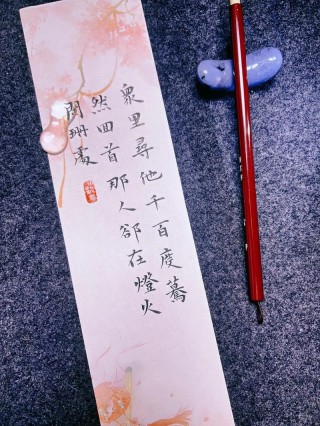 衆里尋他千百度驀
然回首那人郤在燈火
阑珊處